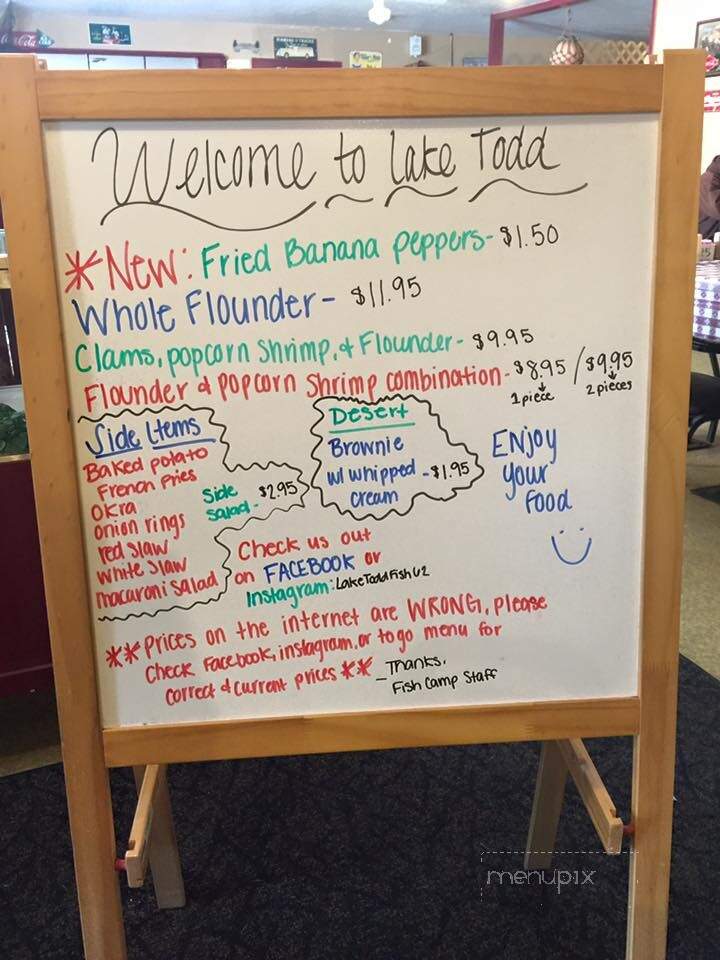 Coca-Cola
Welcome to Lake Todd
*New: Fried Banana peppers- $1.50
Whole Flounder- $11.95
Clams, popcorn Shrimp, & Flounder- $9.95
Flounder & Popcorn Shrimp combination- $8.95 / $9.95
1 piece 2 pieces
Side Items
Baked potato
French Fries
Okra
Onion rings
red slaw
white slaw
macaroni salad
Side
Salad- $2.95
Desert
Brownie
w/ whipped -$1.95
cream
Enjoy
your
food
Check us out
on FACEBOOK or
Instagram: LakeToddFish62
**Prices on the internet are WRONG, please
check Facebook, instagram, or to go menu for
correct & current prices**
-Thanks,
Fish Camp Staff
menupix